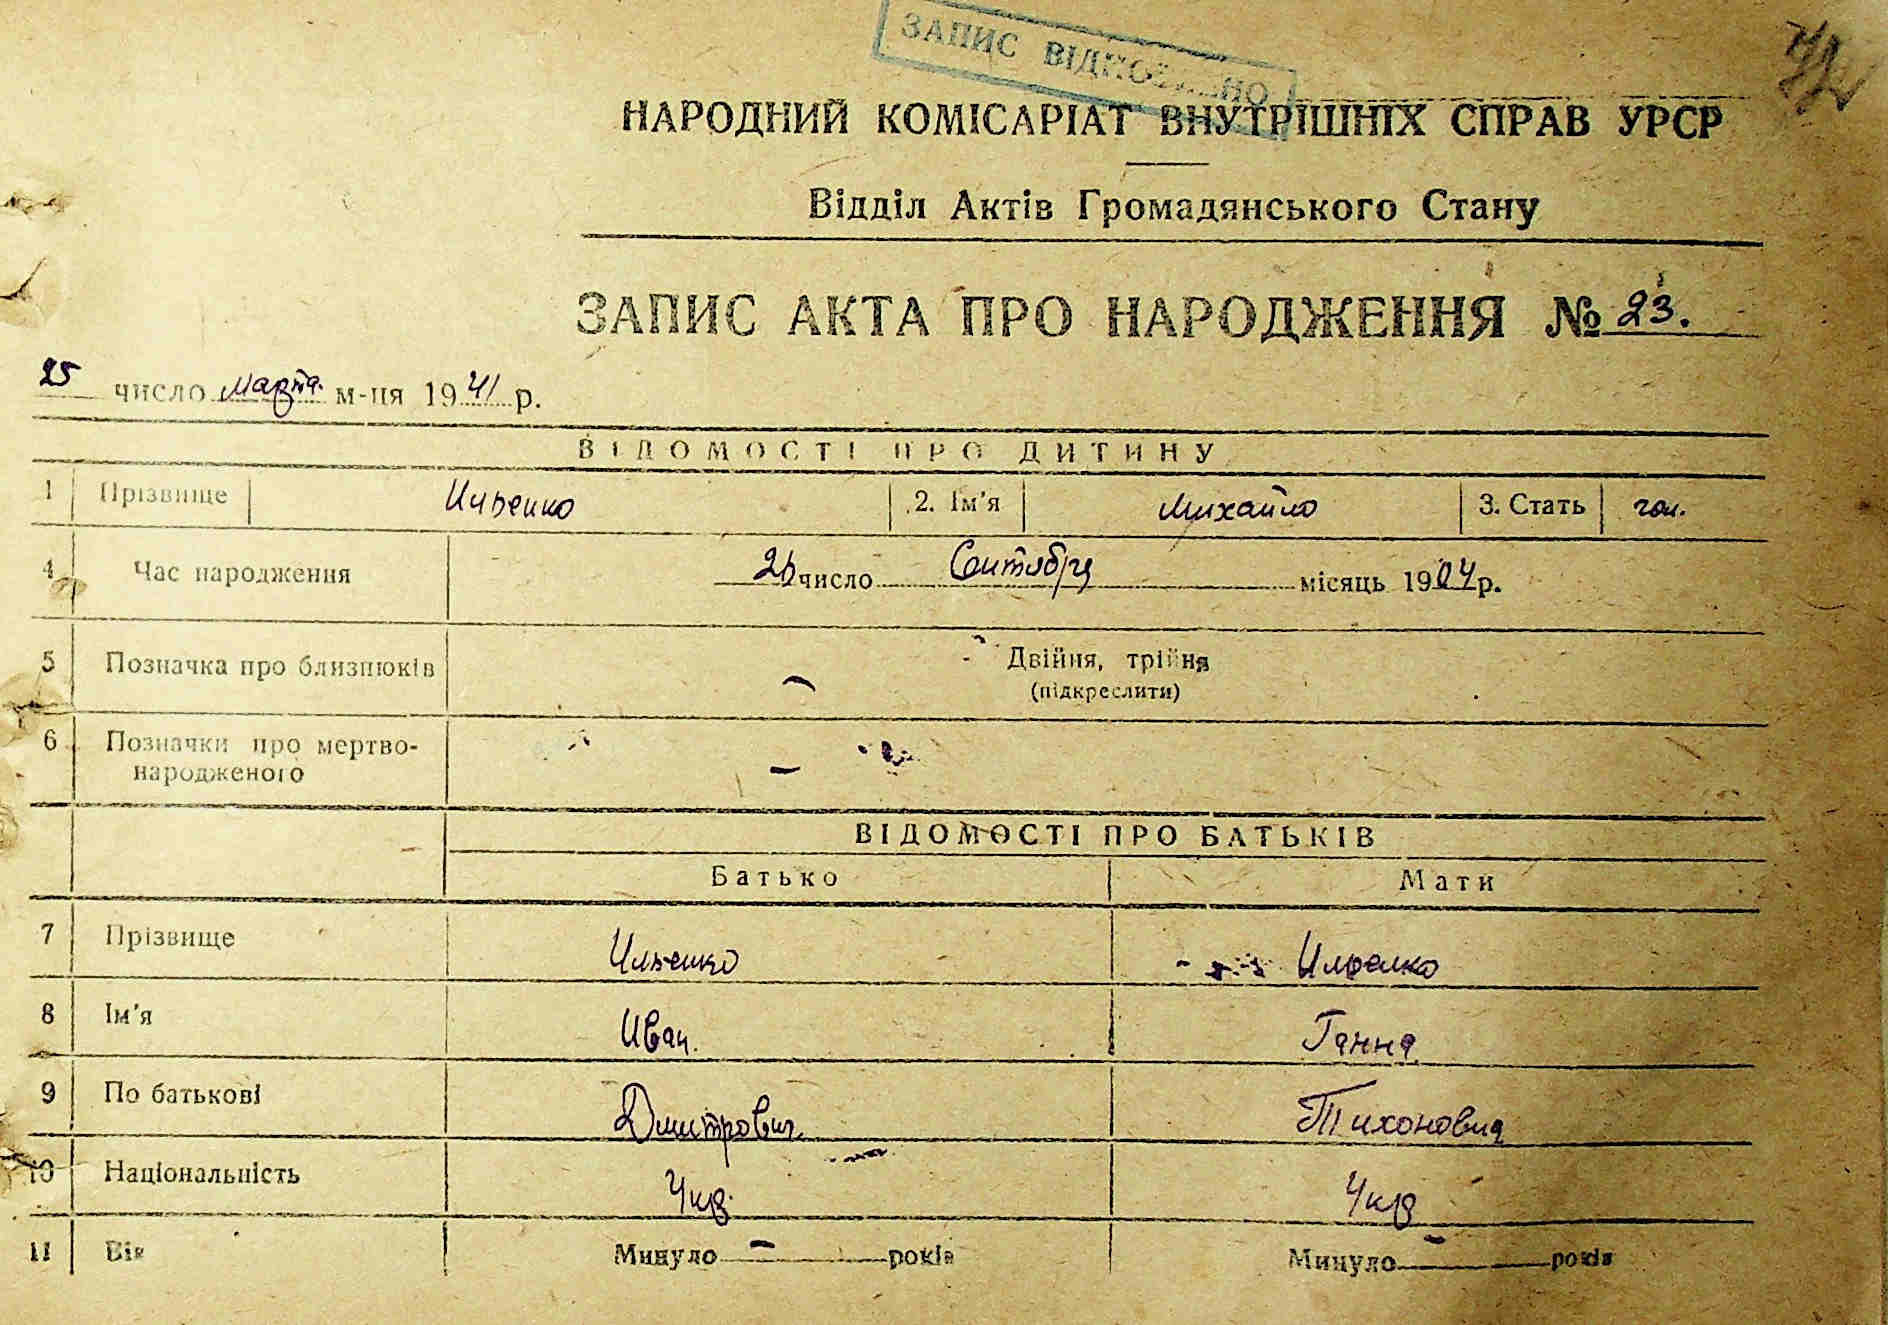 ЗАПИС ВІДНОВЛЕНО
НАРОДНИЙ КОМІСАРІАТ ВНУТРІШНІХ СПРАВ УРСР
Відділ Актів Громадянського Стану
ЗАПИС АКТА ПРО НАРОДЖЕННЯ № 23.
25 число марта м-ця 1941 р.
ВІДОМОСТІ ПРО ДИТИНУ
1 Прізвище Ильенко 2. Ім'я Михайло 3. Стать чол.
4 Час народження число Сентября місяць 1904 р.
5 Позначка про близнюків – Двійня, трійня
(підкреслити)
6 Позначки про мертво-
народженого –
ВІДОМОСТІ ПРО БАТЬКІВ
Батько Мати
7 Прізвище Ильенко Ильенко
8 Ім'я Иван. Ганна
9 По батькові Дмитрович. Тихоновна
10 Національність Укр. Укр
11 Вік Минуло – років Минуло – років